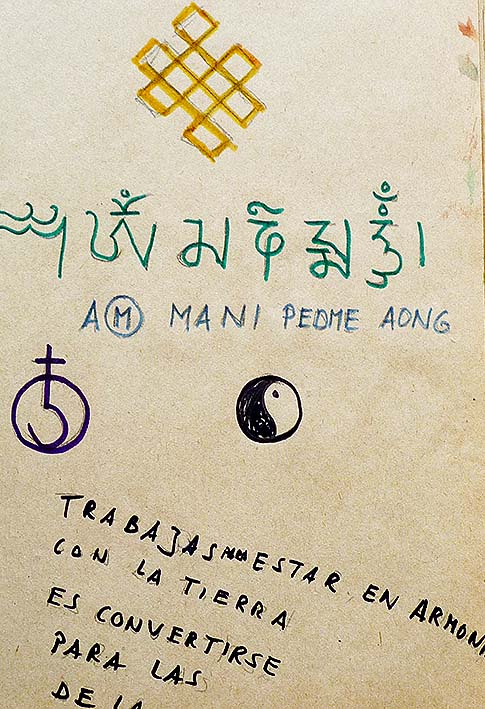 ཨོཾ མ ཎི ཧཱུྃ།
AⓂ MANI PEDME AONG
TRABAJAS ESTAR EN ARMONI
CON LA TIERRA
ES CONVERTIRSE
PARA LAS
DE LA